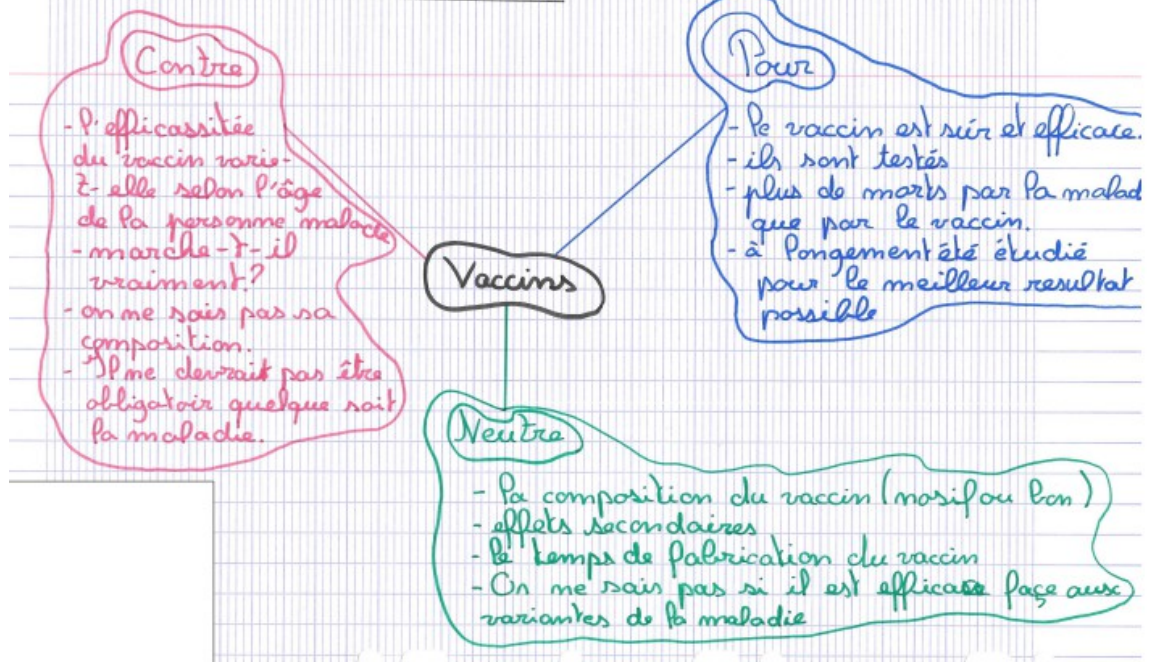 Contre
- l'efficassitée
du vaccin varie-
t-elle selon l'âge
de la personne malade
- marche-t-il
vraiment?
- on ne sais pas sa
composition.
- Il ne devrait pas être
obligatoir quelque soit
la maladie.
Pour
- le vaccin est sûr et efficace.
- ils sont testés
- plus de morts par la malad
que par le vaccin.
- à longement été étudié
pour le meilleur resultat
possible
Vaccins
Neutre
- la composition du vaccin (nosif ou bon)
- effets secondaires
- le temps de fabrication du vaccin
- On ne sais pas si il est efficace façe aux
variantes de la maladie